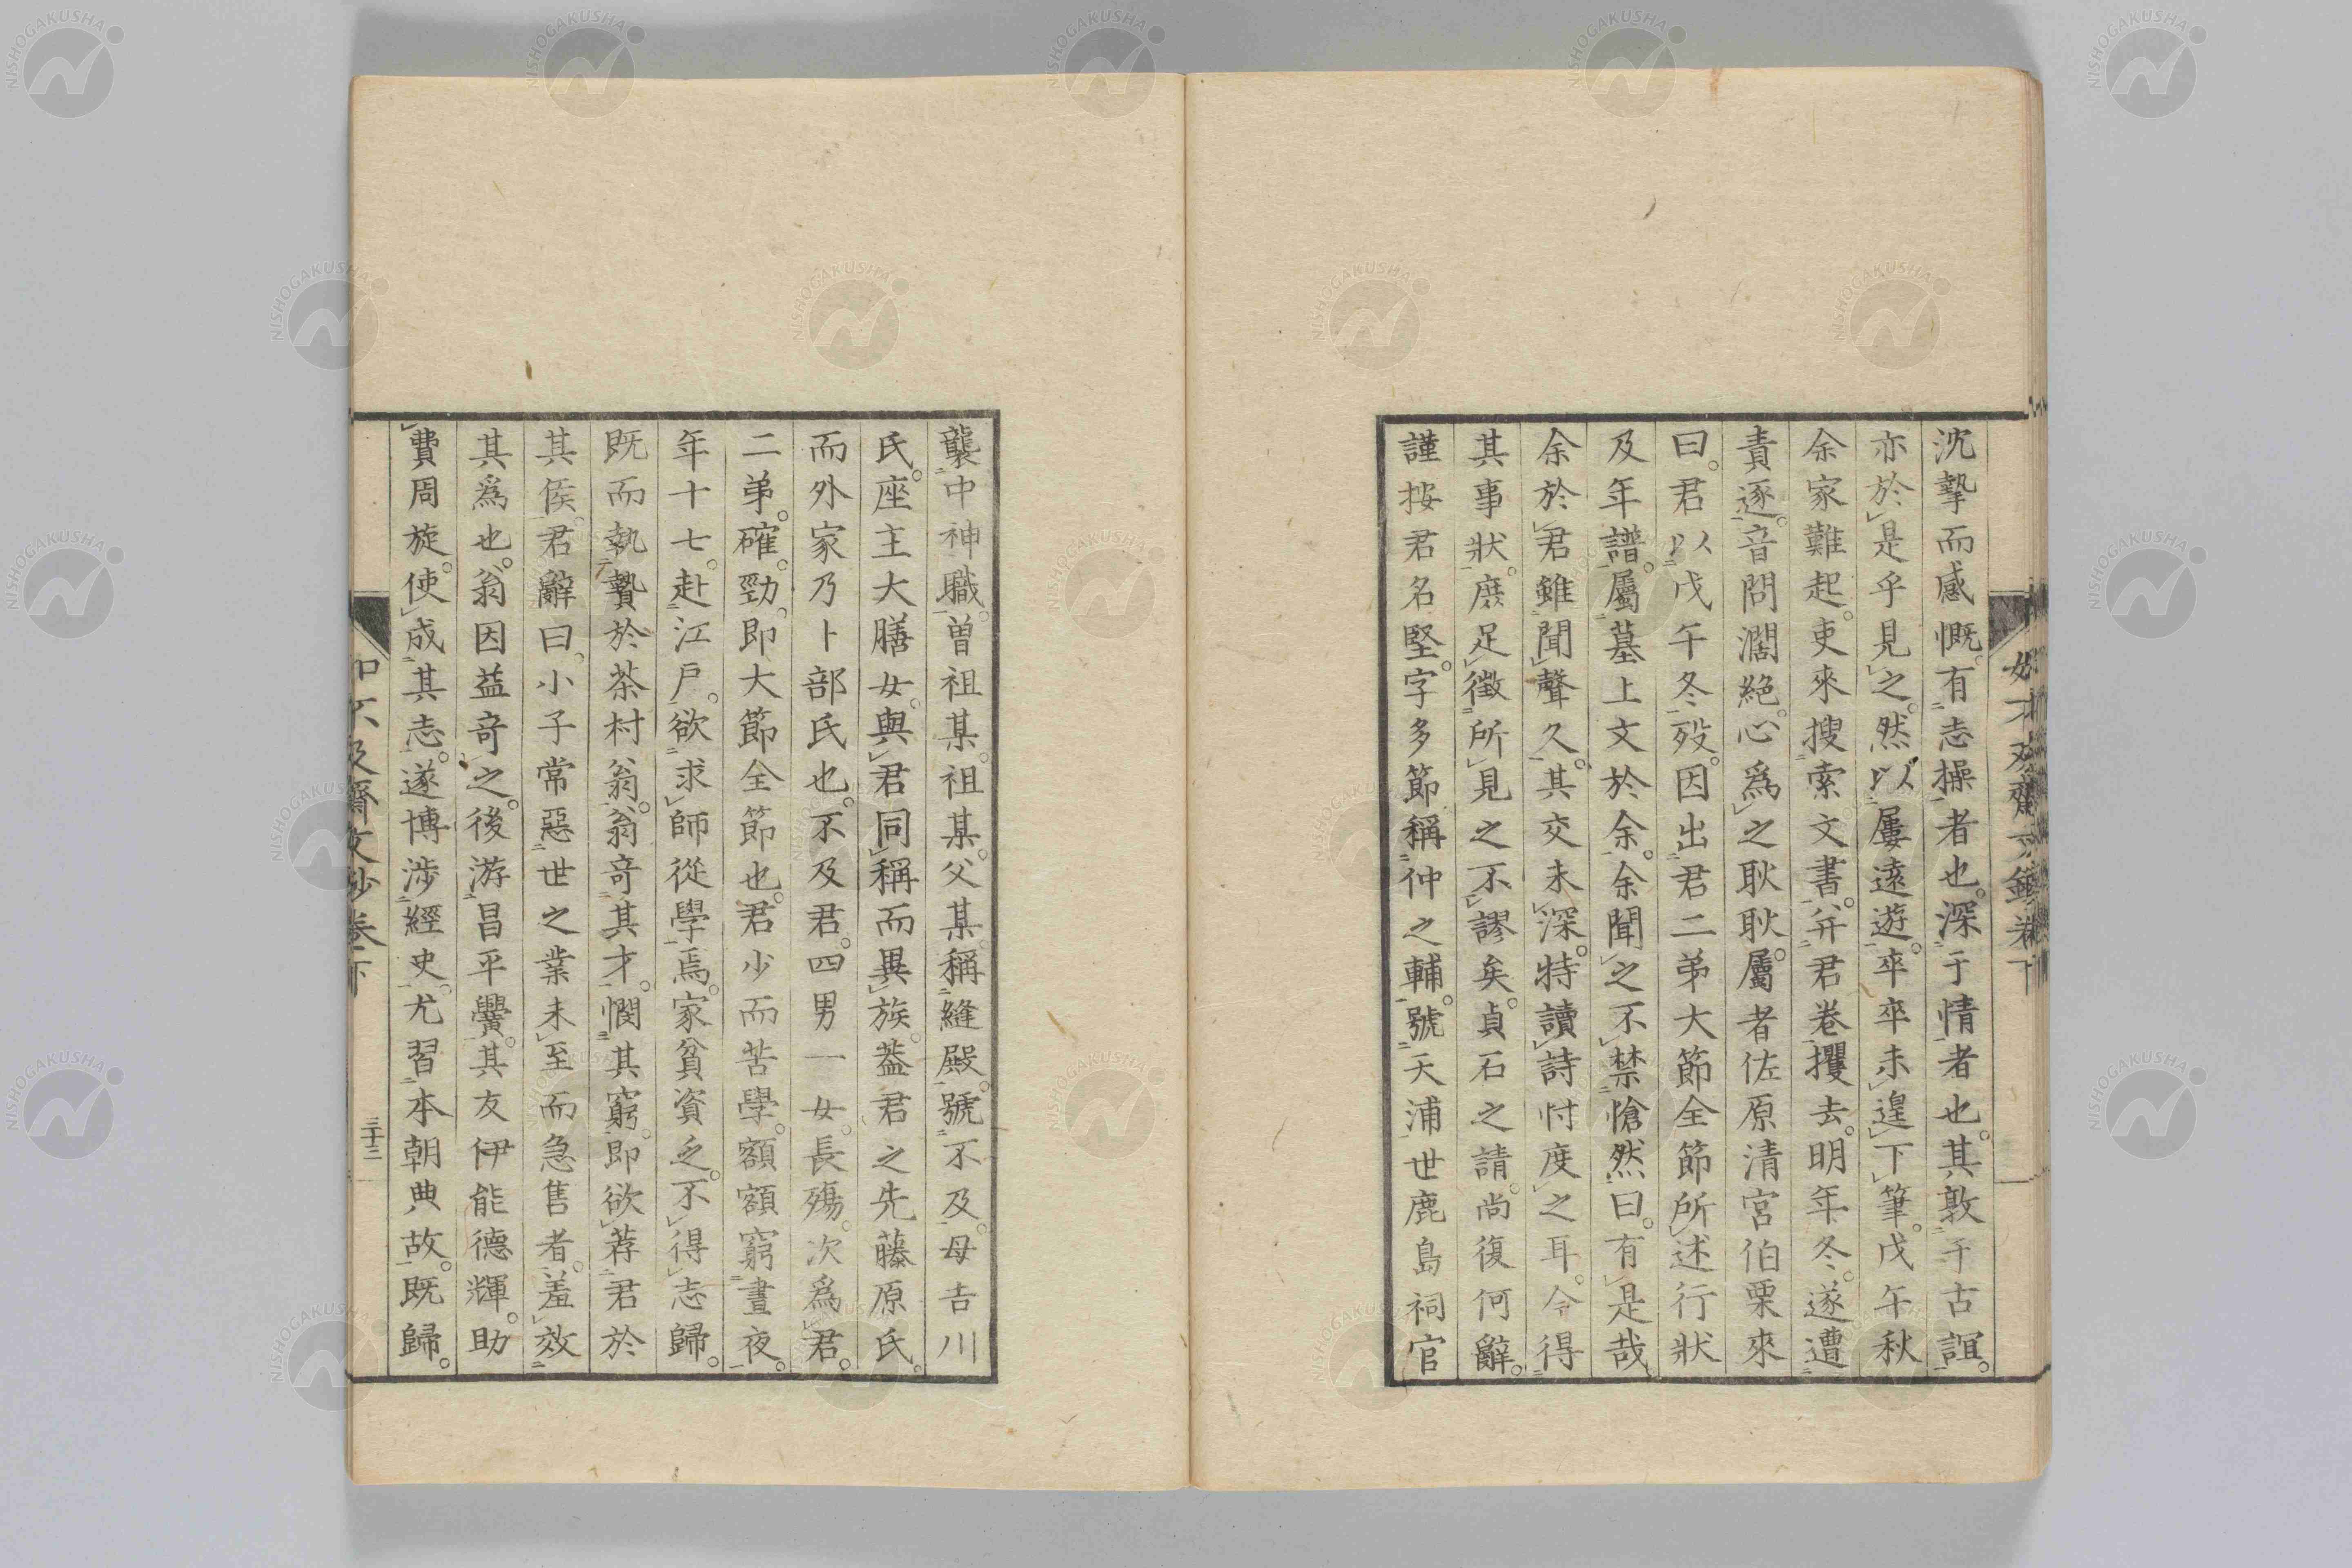 沈摯而感慨。有志操者也。深于情者也。其敦于古誼。
亦於是乎見之。然以屢遠遊。卒卒未遑下筆。戊午秋
余家難起。吏來搜索文書。并君卷攫去。明年冬。遂遭
責逐。音問濶絶。心爲之耿耿。屬者佐原清宮伯栗來
曰。君以戊午冬歿。因出君二弟大節全節所述行狀
及年譜。屬墓上文於余。余聞之不禁愴然曰。有是哉。
余於君雖聞聲久。其交未深。特讀詩忖度之耳。今得
其事狀。庶足徵所見之不謬矣。貞石之請。尚復何辭。
謹按君名堅。字多節。稱仲之輔。號天浦。世鹿島祠官
襲中神職。曽祖某。祖某。父某。稱縫殿。號不及。母吉川
氏。座主大膳女。與君同稱而異族。蓋君之先藤原氏。
而外家乃卜部氏也。不及君。四男一女。長殤。次爲君。
二弟。確。勁。即大節全節也。君少而苦學。額額窮晝夜。
年十七。赴江戸。欲求師從學焉。家貧資乏。不得志歸。
既而執贄於茶村翁。翁奇其才。憫其窮。即欲荐君於
其侯。君辭曰。小子常惡世之業未至而急售者。羞效
其爲也。翁因益奇之。後游昌平黌。其友伊能德輝。助
費周旋。使成其志。遂博涉經史。尤習本朝典故。既歸。
及齋文鈔卷下
三十三
NISHOGAKUSHA